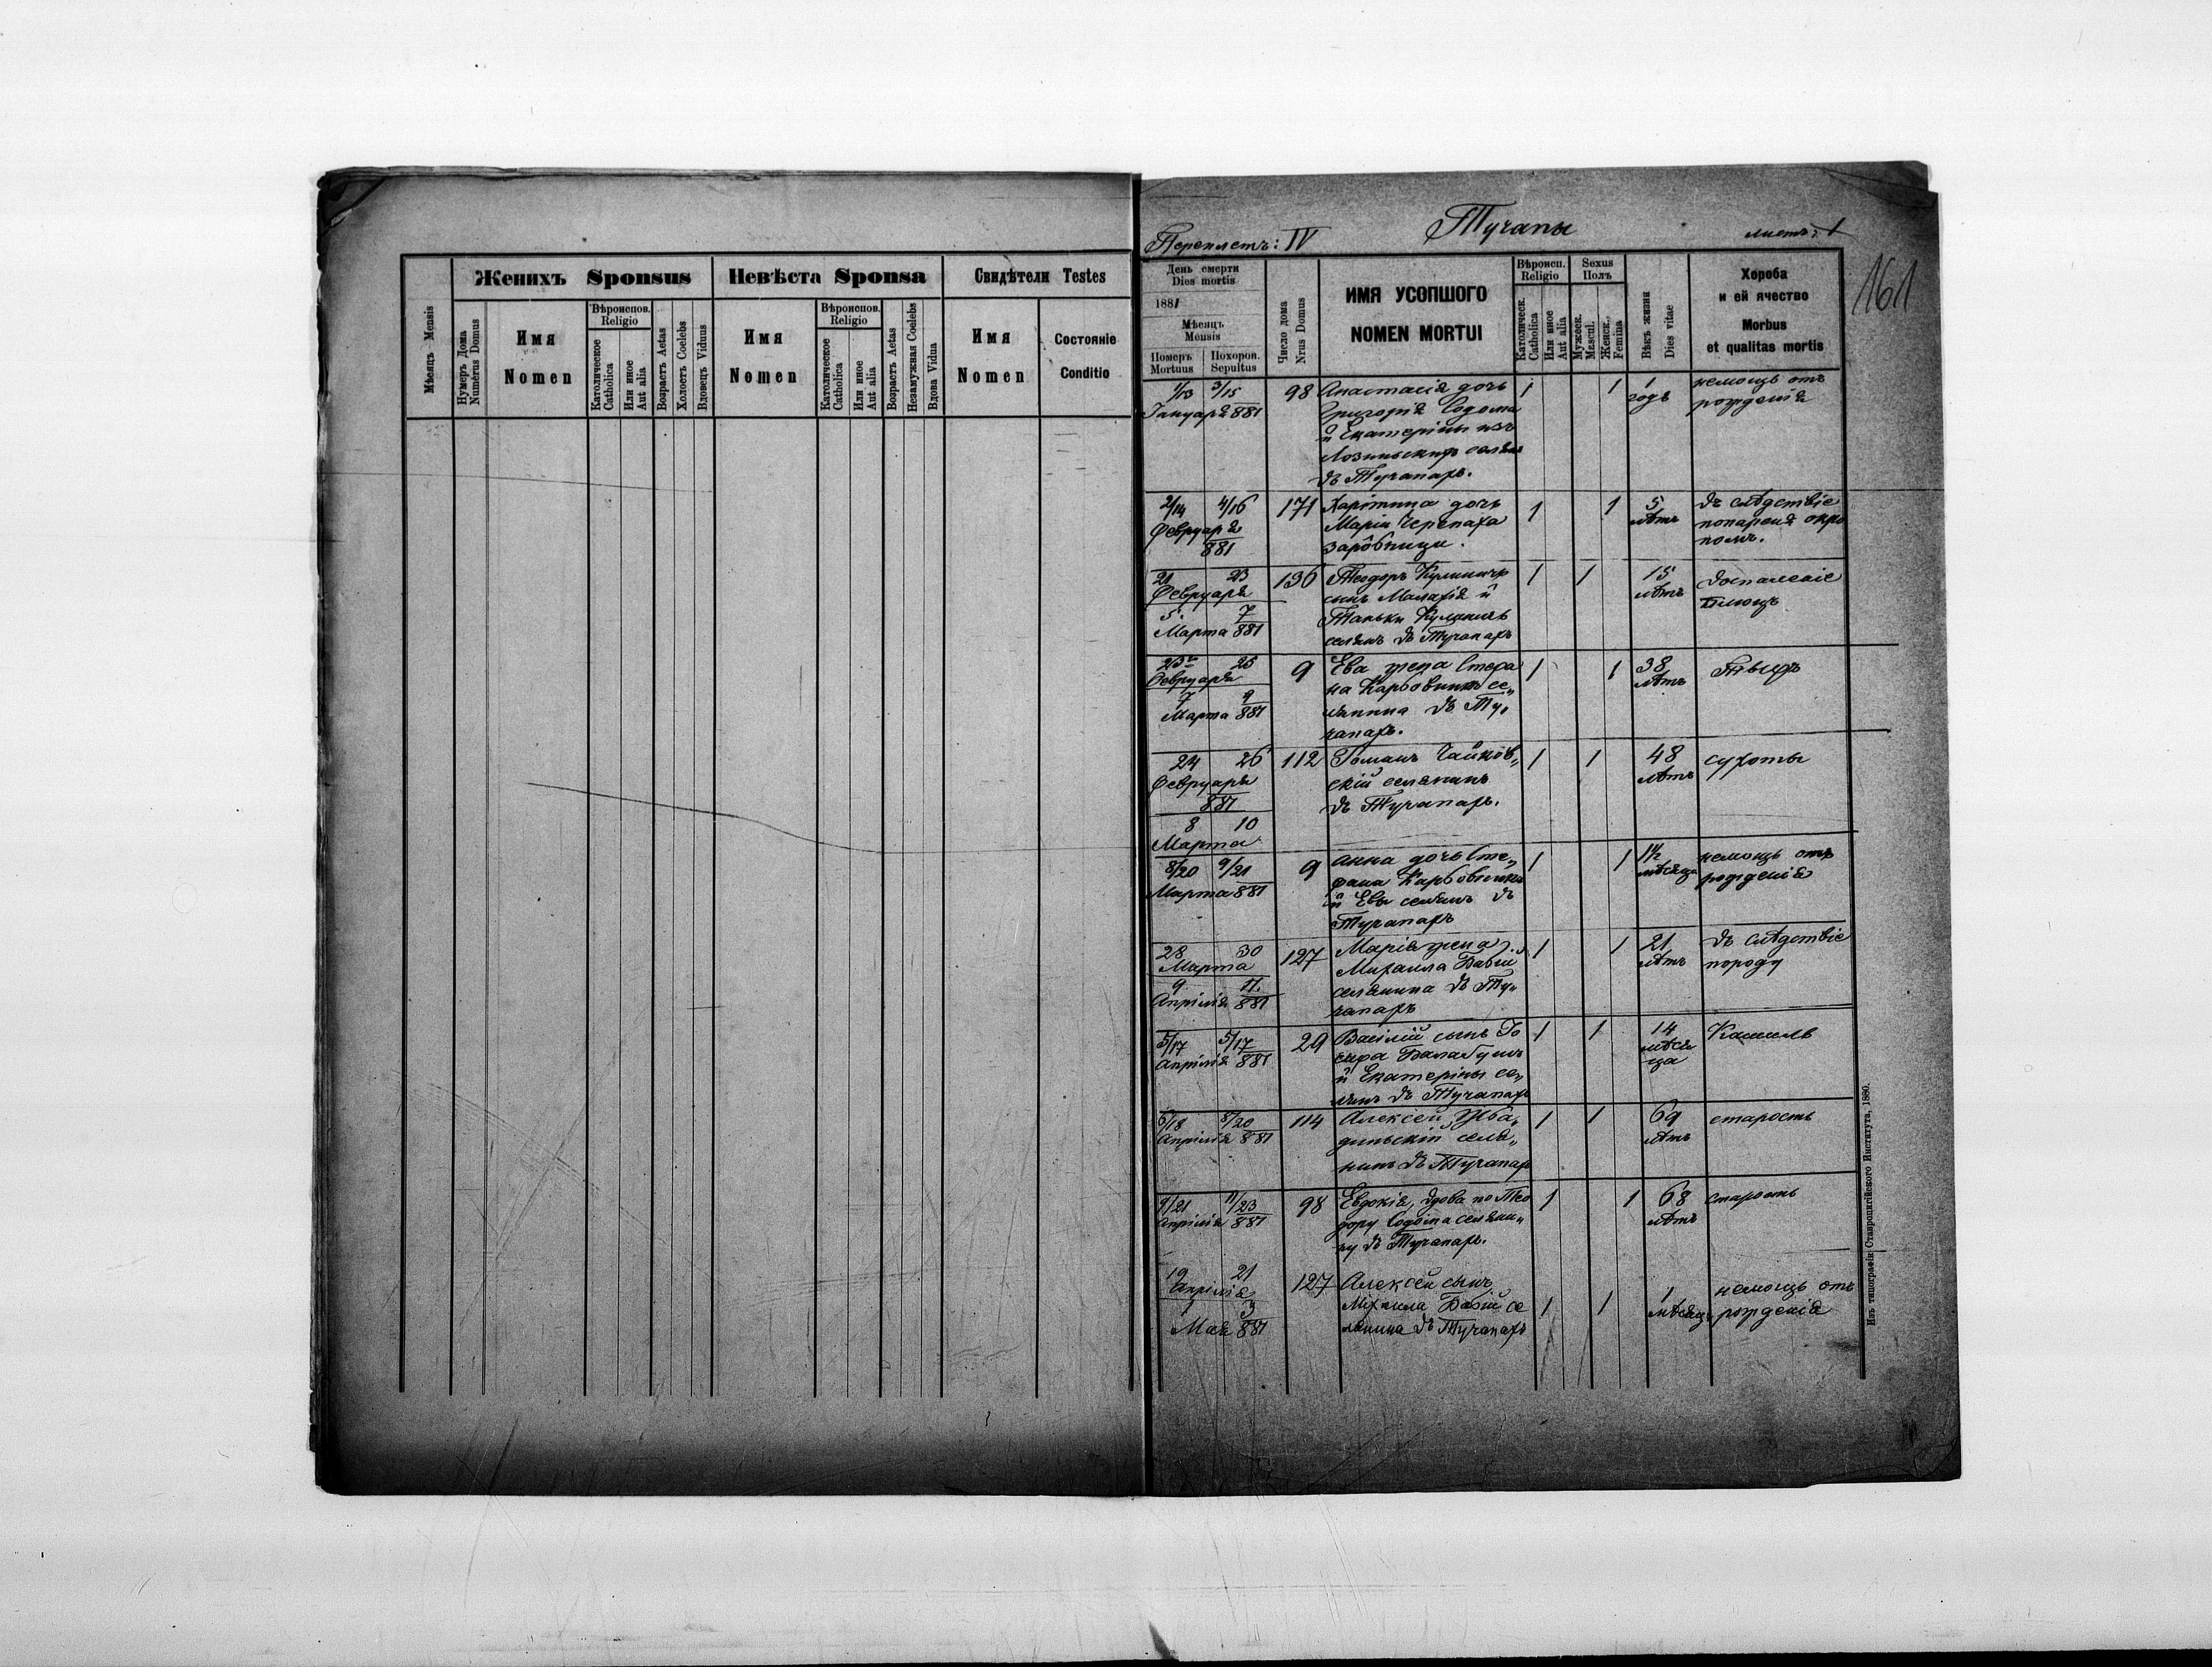 Женихъ Sponsus
Невѣста Sponsa
Свидѣтели Testes
Мѣсяцъ Mensis
Нумеръ Дома
Numerus Domus
Имя
Nomen
Вѣроиспов.
Religio
Католическое
Catholica
Или иное
Aut alia
Возрастъ Aetas
Холостъ Coelebs
Вдовецъ Viduus
Имя
Nomen
Вѣроиспов.
Religio
Католическое
Catholica
Или иное
Aut alia
Возрастъ Aetas
Незамужная Coelebs
Вдова Vidua
Имя
Nomen
Состояніе
Conditio
Переплетъ: IV
Тучапы
листъ: 1
161
День смерти
Dies mortis
1881
Мѣсяцъ
Mensis
Померъ
Mortuus
Похорон.
Sepultus
Число дома
Nrus Domus
ИМЯ УСОПШОГО
NOMEN MORTUI
Вѣроисп.
Religio
Католическ.
Catholica
Или иное
Aut alia
Sexus
Полъ
Мужеск.
Mascul.
Женск.
Femina
Вѣкъ жизни
Dies vitae
Хороба
и ей ячество
Morbus
et qualitas mortis
1/13 3/15 98 Анастасія дочь 1 1 1 немощь отъ
Януарія 881 Григорія Содома годъ рожденія
и Екатерины изъ
Лозиньскихъ селянъ
въ Тучапахъ.
2/14 4/16 171 Харітина дочь 1 1 5 въ слѣдствіе
Февруарія Маріи Черепаха лѣтъ попареня окро
881 зарôбници. помъ.
21 23 136 Теодоръ 1 1 15 воспаленіе
Февруарія сынъ Малахія и лѣтъ
5 7 Таньки
Марта 881 селянъ въ Тучапахъ
23 25 9 Ева жена Стефа 1 1 38
Февруарія на Карбовникъ се„ лѣтъ
7 9 лянина въ Ту„
Марта 881 чапахъ.
24 26 112 Романъ Чайкôв„ 1 1 48 сухоты
Февруарія скій селянинъ лѣтъ
881 въ Тучапахъ.
8 10
Марта
8/20 9/21 9 Анна дочь Сте„ 1 1 1½ немощь отъ
Марта 881 фана Карбовникъ мѣсяца рожденія
и Евы селянъ въ
Тучапахъ
28 30 127 Марія жена 1 1 21 въ слѣдствіе
Марта Михаила Бабій лѣтъ породу
9 11 селянина въ Ту„
Апрілія 881 чапахъ
5/17 5/17 29 Василій сынъ Іо 1 1 14 Кашель
Апрілія 881 сифа мѣся
и Екатерины се„ ца
лянъ въ Тучапахъ
6/18 8/20 114 Алексей 1 1 69 старость
Апрілія 881 селя„ лѣтъ
нинъ въ Тучапахъ
9/21 11/23 98 Евдокія, вдова по Тео 1 1 68 старость
Апрілія 881 дору Содома селяни„ лѣтъ
ну въ Тучапахъ.
19 21 127 Алексей сынъ 1 1 1 немощь отъ
Апрілія Міхаила Бабій се мѣсяцъ рожденія
1 3 лянина въ Тучапахъ
Мая 881
Изъ типографіи Ставропигійского Института, 1880.